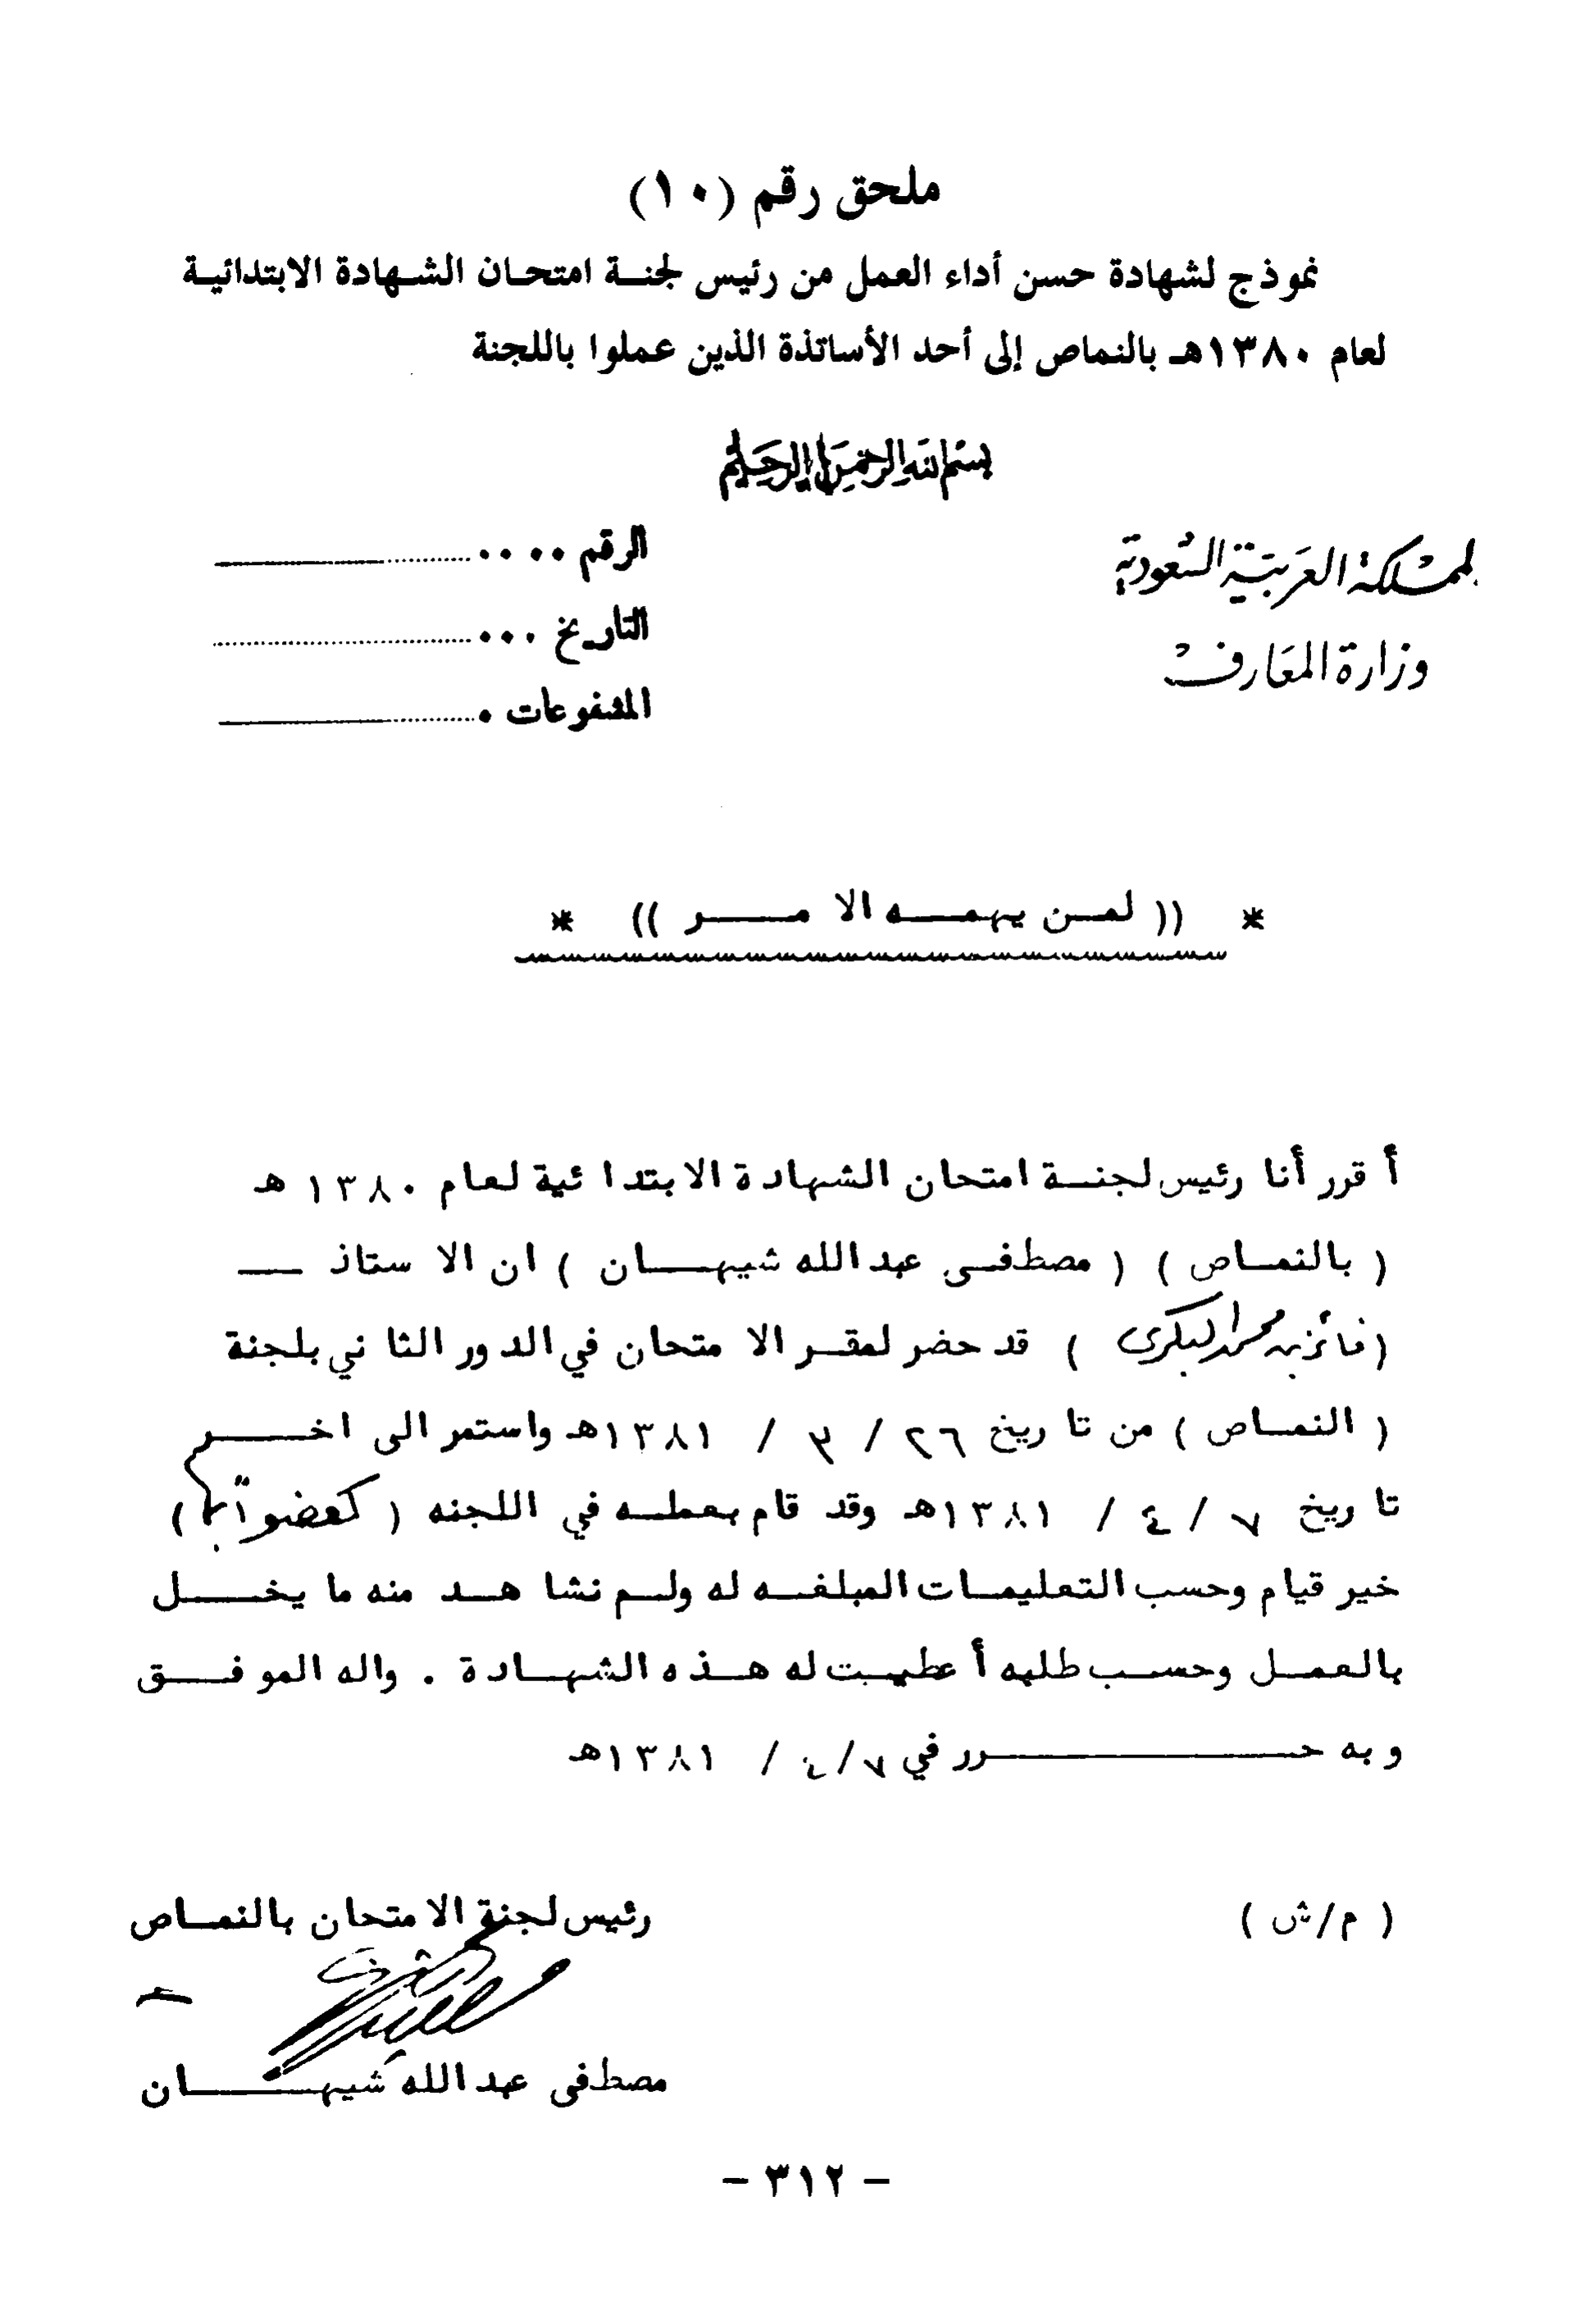 ملحق رقم (١٠)
نموذج لشهادة حسن أداء العمل من رئيس لجنة امتحان الشهادة الابتدائية
لعام ١٣٨٠هـ بالنماص إلى أحد الأساتذة الذين عملوا باللجنة
بسم الله الرحمن الرحيم
المملكة العربية السعودية
وزارة المعارف
الرقم ....
التاريخ ...
المشفوعات .
* (( لمن يهمه الامر )) *
أقرر أنا رئيس لجنة امتحان الشهادة الابتدائية لعام ١٣٨٠ هـ
( بالنماص ) ( مصطفى عبدالله شيهان ) ان الاستاذ
( فائز بن محمد البكري ) قد حضر لمقر الامتحان في الدور الثاني بلجنة
( النماص ) من تاريخ ٢٦ / ٣ / ١٣٨١هـ واستمر الى اخر
تاريخ ٧ / ٤ / ١٣٨١هـ وقد قام بعمله في اللجنه ( كعضو )
خير قيام وحسب التعليمات المبلغه له ولم نشاهد منه ما يخل
بالعمل وحسب طلبه أعطيت له هذه الشهادة . واله الموفق
وبه حرر في ٧/ ٤ / ١٣٨١هـ
( م/ش )
رئيس لجنة الامتحان بالنماص
مصطفى عبدالله شيهان
- ٣١٢ -